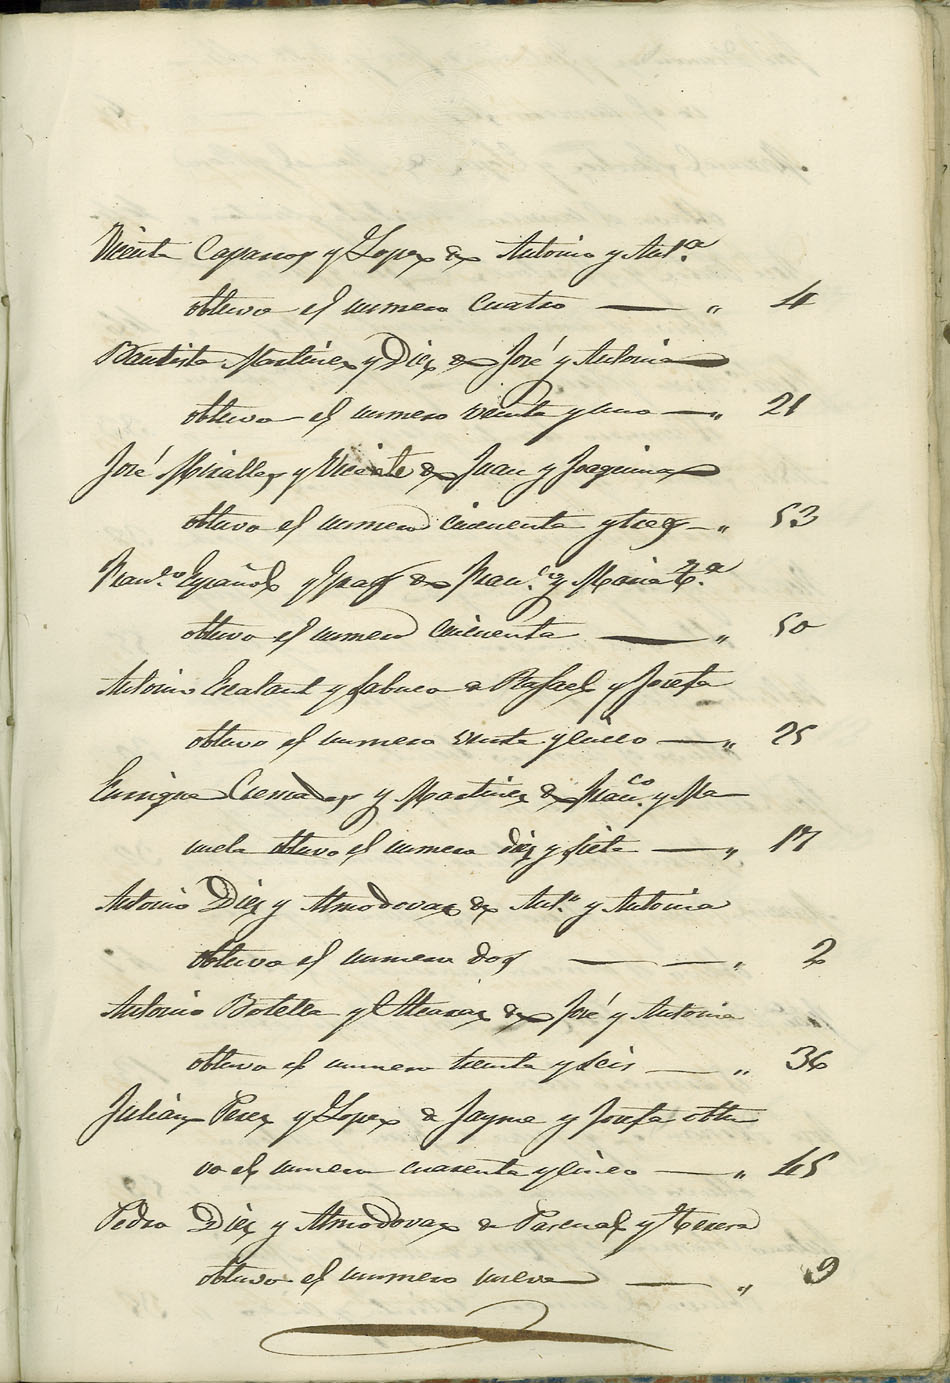 Vicente Caparros y Lopez de Antonio y Ant.ª
obtuvo el numero cuatro — „ 4
Bautista Martinez y Diez de José y Antonia
obtuvo el numero veinte y uno — „ 21
José Miralles y Vicente de Juan y Joaquina
obtuvo el numero cincuenta y tres — „ 53
Fran.co Español y de Fran.co y Maria T.ª
obtuvo el numero cincuenta — „ 50
Antonio y de Rafael y Josefa
obtuvo el numero veinte y cinco — „ 25
Enrique Cremades y Martinez de Fran.co y Ma
nuela obtuvo el numero diez y siete — „ 17
Antonio Diez y Almodovar de Ant.o y Antonia
obtuvo el numero dos — — „ 2
Antonio Botella y de José y Antonia
obtuvo el numero treinta y seis — „ 36
Julian Perez y Lopez de Jayme y Josefa obtu
vo el numero cuarenta y cinco — „ 45
Pedro Diez y Almodovar de Pascual y Teresa
obtuvo el numero nueve — „ 9